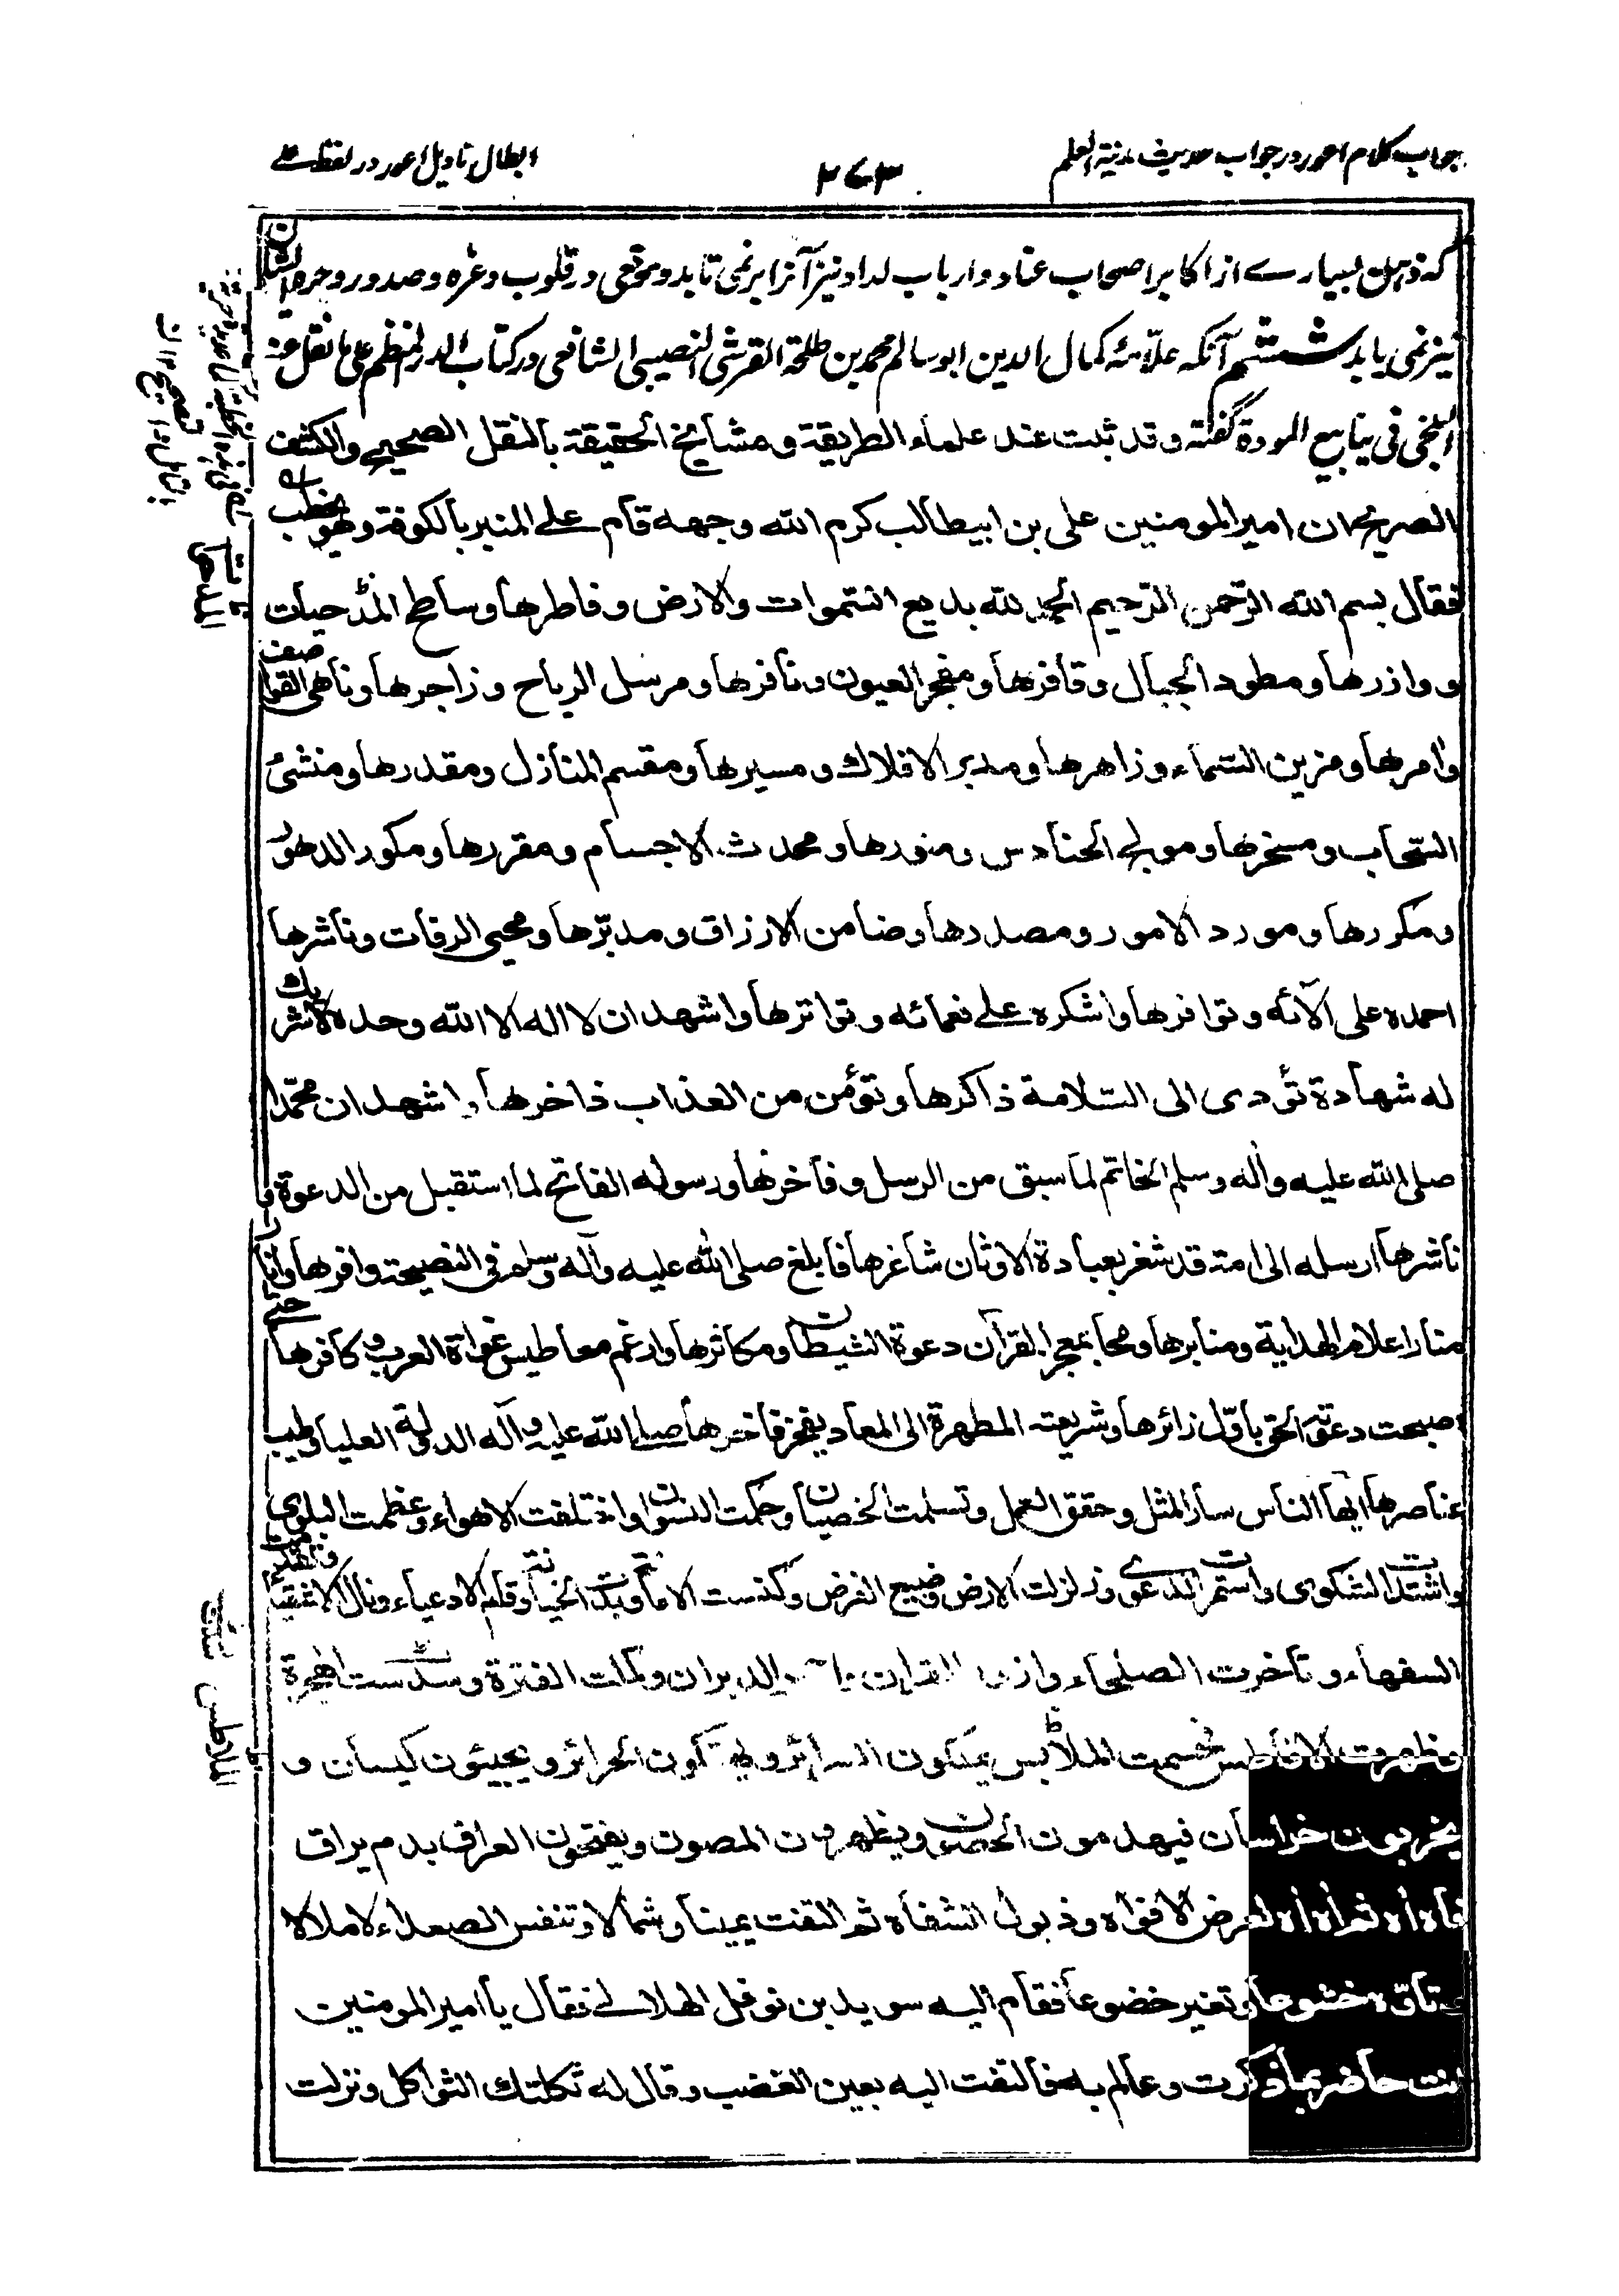 جواب کلام اعور در جواب حدیث مدینة العلم
۳۶۳
ابطال تاویل اعور در لفظ علی
که ذهن بسیارے از اکابر اصحاب عناد و ارباب لداد نیز آنرا برنمی تابد و موقعی در قلوب وغره و صدور وحره ایشان
نیز نمی یابد ششم آنکه علّامهٔ کمال الدین ابو سالم محمد بن طلحة القرشی النصیبی الشافعی در کتاب الدر المنظم علی ما نقل عنه
البلخی فی ینابیع المودة گفته وقد ثبت عند علماء الطریقة ومشایخ الحقیقة بالنقل الصحیح والکشف
الصریح ان امیر المومنین علی بن ابیطالب کرم الله وجهه قام علی المنبر بالکوفة وهو یخطب
فقال بسم الله الرّحمن الرّحیم الحمد لله بدیع السّموات والارض وفاطرها وساطح المدحیات
ووازرها ومطود الجبال وقافرها ومفجر العیون ونافرها ومرسل الریاح وزاجرها وناهی القواصف
وآمرها ومزین السّماء وزاهرها ومدبر الافلاك ومسیرها ومقسم المنازل ومقدرها ومنشئ
السّحاب ومسخرها ومولج الحنادس ومنورها ومحدث الاجسام ومقررها ومکور الدهور
ومکررها ومورد الامور ومصدرها وضامن الارزاق ومدبّرها ومحیی الرفات وناشرها
احمده علی آلائه وتوافرها واشکره علی نعمائه وتواترها واشهد ان لا اله الا الله وحده لا شریك
له شهادة تؤدی الی السّلامة ذاکرها وتؤمن من العذاب ذاخرها واشهد ان محمّدا
صلی الله علیه وآله وسلم الخاتم لما سبق من الرسل وفاخرها ورسوله الفاتح لما استقبل من الدعوة و
ناشرها ارسله الی امة قد شغر بعبادة الاوثان شاغرها فابلغ صلی الله علیه وآله وسلم فی النصیحة وافرها وانار
منار اعلام الهدایة ومنابرها ومحا بمعجز القرآن دعوة الشیطان ومکاثرها وارغم معاطیس غواة العرب وکافرها حتی
اصبحت دعوته الحق باوّل زائرها وشریعته المطهرة الی المعاد یفخر فاخرها صلی الله علیه وآله الدوحة العلیا وطیب
عناصرها ایّها الناس سار المثل وحقق العمل وتسلمت الخصیان وحکمت النسوان واختلفت الاهواء وعظمت البلوی
واشتدت الشکوی واستمرت الدعوی وزلزلت الارض وضیع الفرض وکنست الامانة وبدت الخیانة وقام الادعیاء ونال الاشقیاء وتقدمت
السفهاء وتاخرت الصلحاء القران الدبران وکملت الفترة وسدست الهجرة
وظهرت الافاطس فحسمت الملابس یملکون السرائر ویهتکون الحرائر ویجیئون کیسان و
یخربون خراسان فیهدمون الحصون ویظهرون المصون ویفتحون العراق بدم یراق
فآه آه ثم آه آه لعرض الافواه وذبول الشفاه ثم التفت یمینا وشمالا وتنفس الصعداء لا ملالا
وتاوّه خشوعا وتغیر خضوعا فقام الیه سوید بن نوفل الهلالی فقال یا امیر المومنین
انت حاضر بما ذکرت وعالم به فالتفت الیه بعین الغضب وقال له ثکلتك الثواکل ونزلت